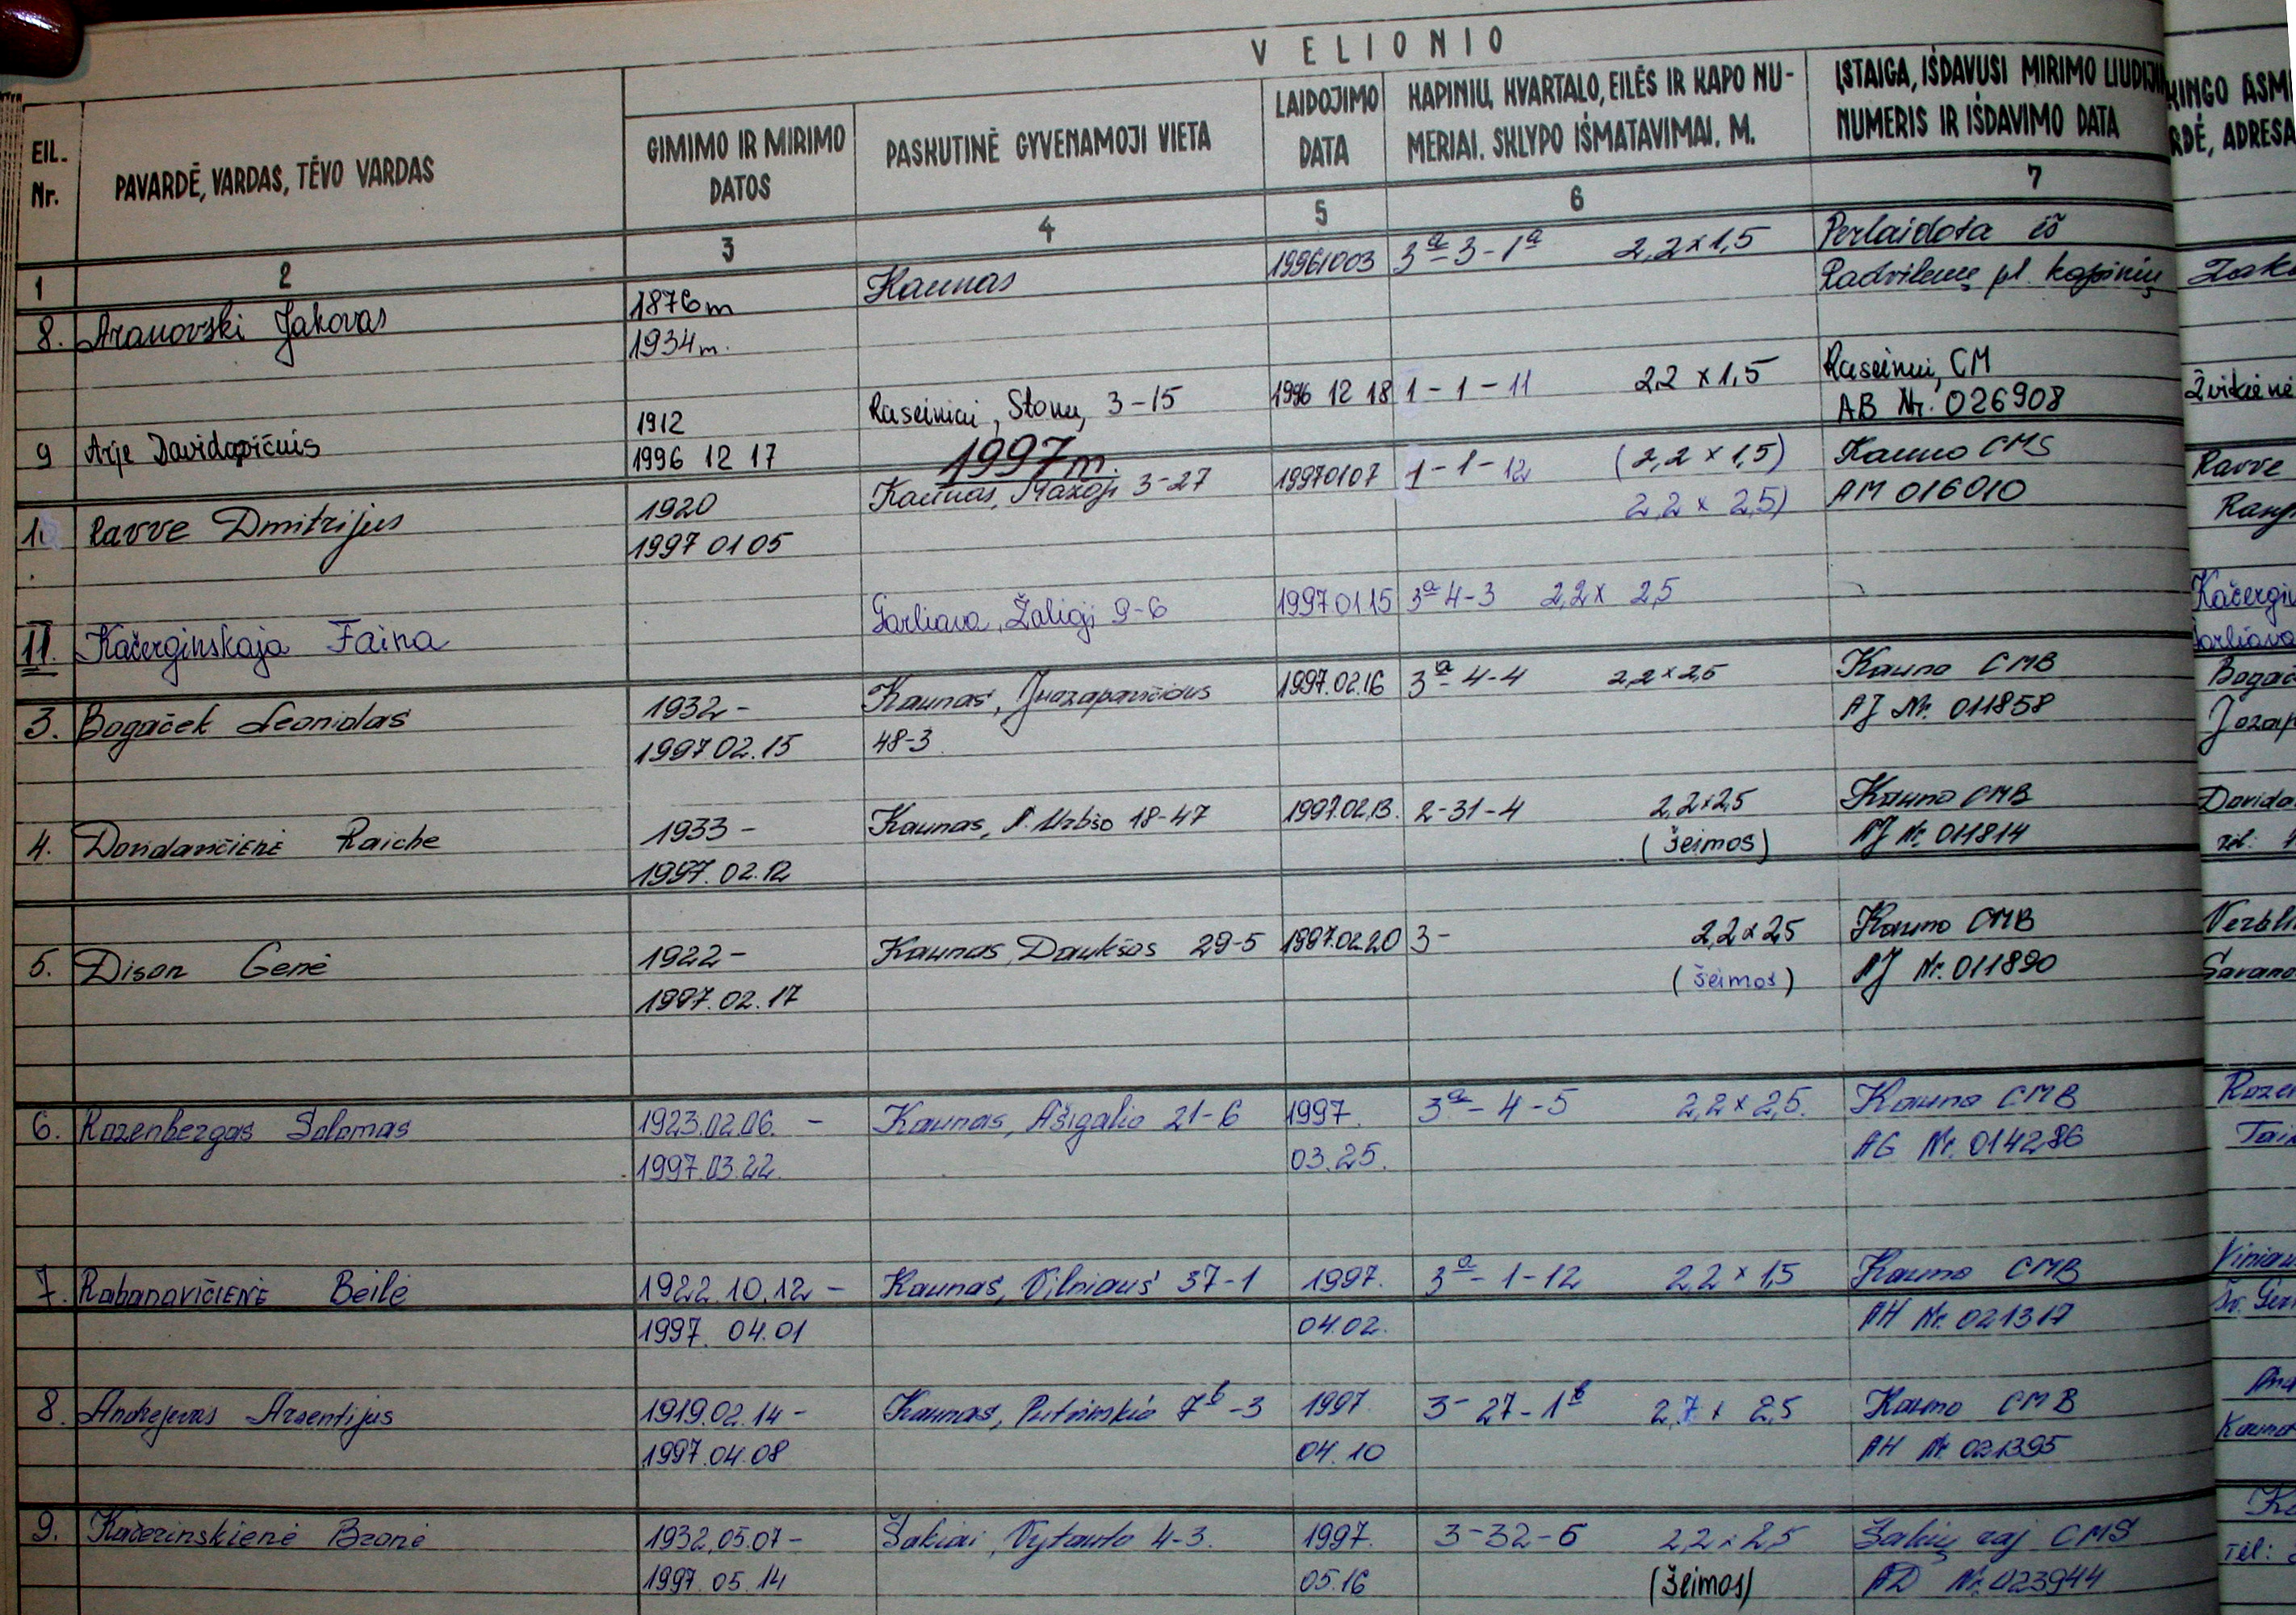 VELIONIO
EIL. Nr.
PAVARDĖ, VARDAS, TĖVO VARDAS
GIMIMO IR MIRIMO DATOS
PASKUTINĖ GYVENAMOJI VIETA
LAIDOJIMO DATA
KAPINIŲ, KVARTALO, EILĖS IR KAPO NU-
MERIAI. SKLYPO IŠMATAVIMAI. M.
ĮSTAIGA, IŠDAVUSI MIRIMO LIUDIJ
NUMERIS IR IŠDAVIMO DATA
KINGO ASM
RDĖ, ADRESA
1 2 3 4 5 6 7
8. Aranovski Jakovas 1876m Kaunas 19961003 3a-3-1a 2,2x1,5 Perlaidota iš
1934m. Radvilėnų pl. kapinių
1912 Raseiniai, Stonų 3-15 1996 12 18 1-1-11 2,2 x 1,5 Raseinių CM
9 Arje Davidovičius 1996 12 17 AB Nr. 026908 Žvikienė
1997m.
1920 Kaunas, 3-27 19970107 1-1-12 (2,2 x 1,5) Kauno CMS Ravve
1. Ravve Dmitrijus 1997 01 05 2,2 x 2,5) AM 016010
11. Kačerginskaja Faina Garliava, Žalioji 9-6 1997.01.15 3a 4-3 2,2x 2,5 Kačergin
Garliava
3. Bogaček Leonidas 1932- Kaunas, Juozapavičiaus 1997.02.16 3a-4-4 2,2x2,5 Kauno CMB Bogač
1997.02.15 48-3 AJ Nr. 011858 Jozap
4. Davidavičienė Raiche 1933- Kaunas, Urbšo 18-47 1997.02.13. 2-31-4 2,2x2,5 Kauno CMB Davida
1997.02.12 (šeimos) AJ Nr. 011814
5. Dison Genė 1922- Kaunas, Daukšos 29-5 1997.02.20 3- 2,2x2,5 Kauno CMB Verbli
1997.02.17 (šeimos) AJ Nr. 011890 Savano
6. Rozenbergas Solomas 1923.02.06. - Kaunas, Ašigalio 21-6 1997. 3a-4-5 2,2x2,5. Kauno CMB Rozen
1997.03.22. 03.25. AG Nr. 014286 Tai
7. Rabanavičienė Beilė 1922.10.12- Kaunas, Vilniaus 37-1 1997. 3a-1-12 2,2 x 1,5 Kauno CMB
1997. 04.01 04.02. AH Nr. 021317
8. Andrejevas Arsentijus 1919.02.14- Kaunas, Putvinskio 7b-3 1997. 3-27-1b 2,7 x 2,5 Kauno CMB And
1997.04.08 04.10 AH Nr. 021395 Kauno
9. Kačerinskienė Bronė 1932.05.07- Šakiai, Vytauto 4-3. 1997. 3-32-6 2,2x2,5 Šakių raj CMS Ka
1997.05.14 05.16 (šeimos) AD Nr. 023944 Tel: